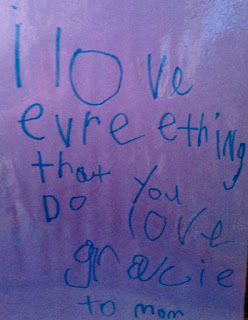 i love
evreething
that you
DO love
gracie
to mom